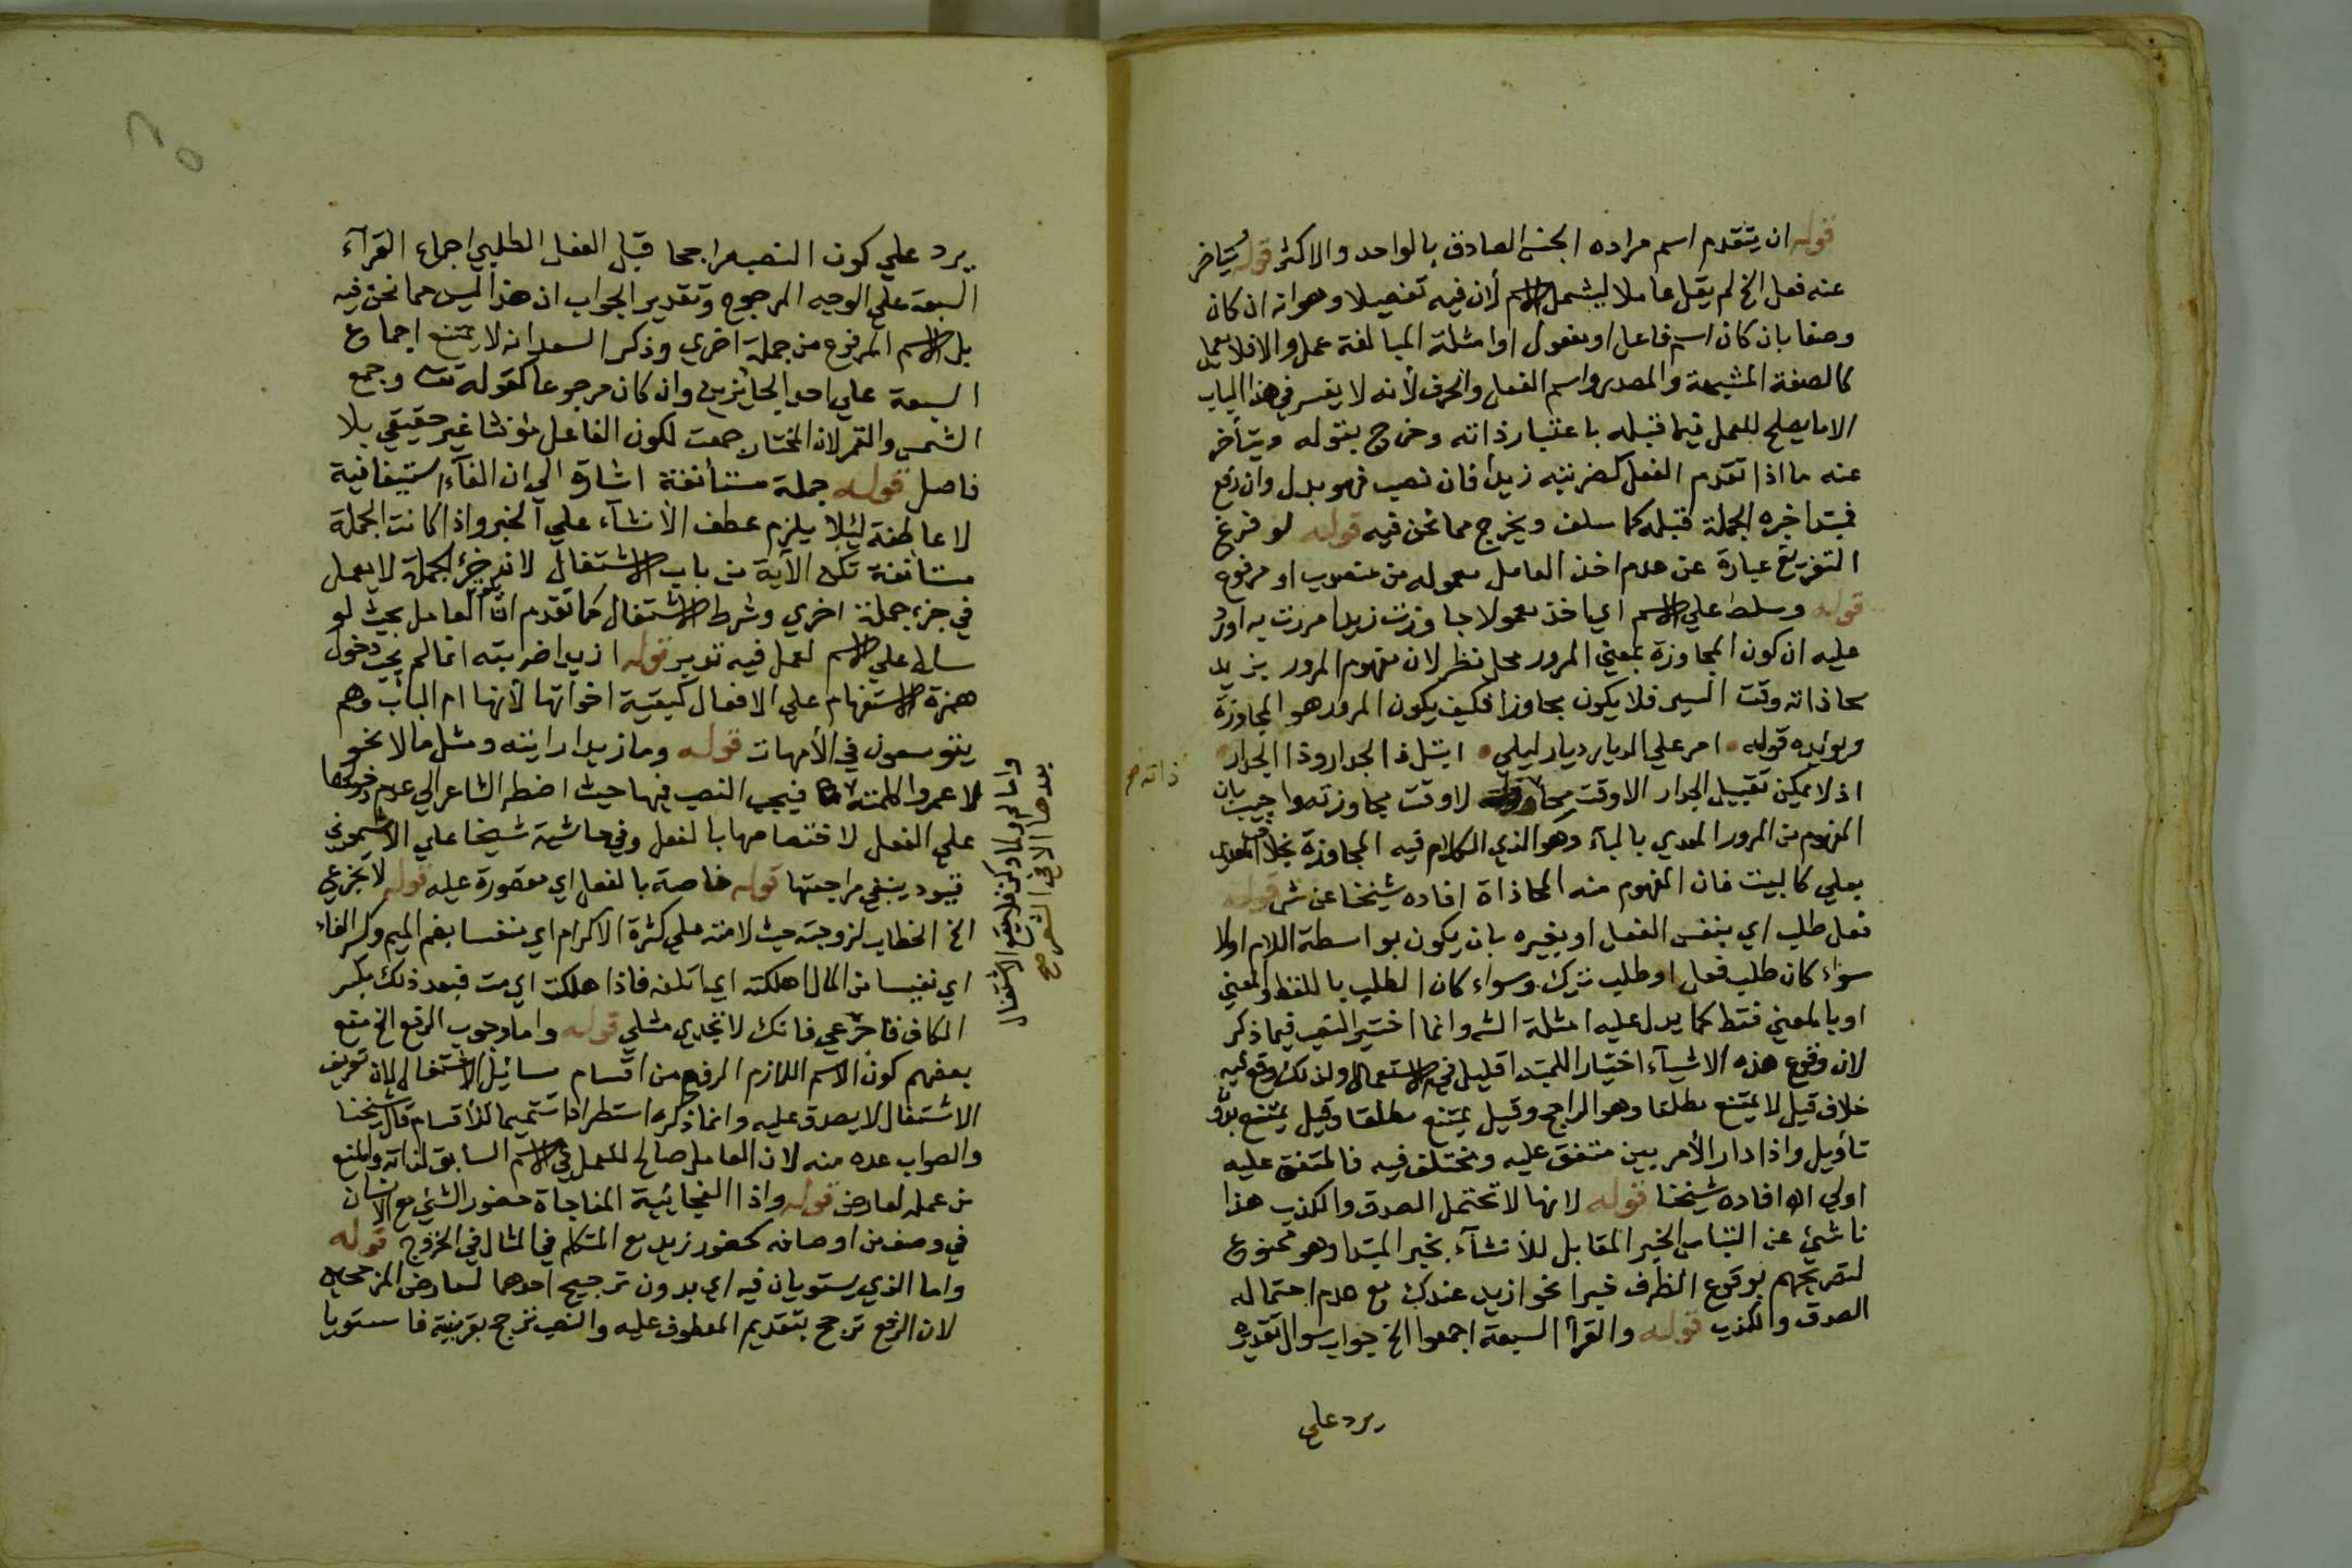 قوله ان يتقدم اسم مراده الجنس الصادق بالواحد والاكثر قوله يتاخر
عنه فعل الخ لم يقل عاملا ليشمل الاسم لأن فيه تفصيلا وهو انه ان كان
وصفا بان كان اسم فاعل او مفعول او امثلة المبالغة عمل والا فلا يعمل
كالصفة المشبهة والمصدر واسم الفعل والحرف لأنه لا يفسر في هذا الباب
الا ما يصلح للعمل فيما قبله باعتبار ذاته وخرج بقوله ويتأخر
عنه ما اذا تقدم الفعل كضربته زيدا فان نصب فهو بدل وان رفع
فمبتدا خبره الجملة قبله كما سلف ويخرج مما نحن فيه قوله لو فرغ
التفريغ عبارة عن عدم اخذ العامل معموله من منصوب او مرفوع
قوله وسلط علي الاسم اي ياخذ معمولا جاوزت زيدا مررت به اورد
عليه ان كون المجاوزة بمعني المرور محل نظر لان مفهوم المرور بزيد
محاذاته وقت السير فلا يكون مجاوزا فكيف يكون المرور هو المجاوزة
ويؤيده قوله امر علي الديار ديار ليلي اقبل ذا الجدار وذا الجدار
اذ لا يمكن تقبيل الجدار الا وقت لا وقت مجاوزته واجيب بان
المفهوم من المرور المعدي بالباء وهو الذي الكلام فيه المجاوزة بخلاف المعدي
بعلي كالبيت فان المفهوم منه المحاذاة افاده شيخنا عن ش قوله
فعل طلب اي بنفس الفعل او بغيره بان يكون بواسطة اللام او لا
سواء كان طلب فعل او طلب ترك وسواء كان الطلب باللفظ والمعني
او بالمعني فقط كما يدل عليه امثلة الش وانما اختير النصب فيما ذكر
لان وقوع هذه الاشياء اختيار للمبتدا قليل في الاستعمال ولذلك وقع فيه
خلاف قيل لا يمتنع مطلقا وهو الراجح وقيل يمتنع مطلقا وقيل يمتنع بلا
تأويل واذا دار الأمر بين متفق عليه ومختلف فيه فالمتفق عليه
اولي اه افاده شيخنا قوله لانها لا تحتمل الصدق والكذب هذا
ناشئ عن التباس الخبر المقابل للأنشآء بخبر المبتدا وهو ممنوع
لتصريحهم بوقوع الظرف خبرا نحو ازيد عندك مع عدم احتماله
الصدق والكذب قوله والقرآ السبعة اجمعوا الخ جواب سوال تقديره
يرد علي
ذاته
يرد علي كون النصب راجحا قبل الفعل الطلبي اجماع القرآء
السبعة علي الوجه المرجوح وتقدير الجواب ان هذا ليس مما نحن فيه
بل الاسم المرفوع من جملة اخري وذكر السعد انه لا يمتنع اجماع
السبعة علي احد الجائزين وان كان مرجوحا كقوله تعـ وجمع
الشمس والقمر لان المختار جمعت لكون الفاعل مؤنثا غير حقيقي بلا
فاصل قوله جملة مستأنفة اشارة الي ان الفآء استينافية
لا عاطفة ليئلا يلزم عطف الأنشآء علي الخبر واذا كانت الجملة
مستانفة تكن الآية من باب الاشتغال لانه جزؤ الجملة لا يعمل
في جزء جملة اخري وشرط الاشتغال كما تقدم ان العامل بحيث لو
سلط علي الاسم لعمل فيه تدبر قوله ازيدا ضربته انما لم يجب دخول
همزة الاستفهام علي الافعال كبقية اخواتها لأنها ام الباب وهم
يتوسعون في الأمهات قوله وما زيدا رايته ومثل ما لا نحو
لا عمروا كلمته فيجب النصب فيها حيث اضطر الشاعر الي عدم دخولها
علي الفعل لاختصاصها بالفعل وفي حاشية شيخنا علي الأشموني
قيود ينبغي مراجعتها قوله خاصة بالفعل اي مقصورة عليه قوله لا تجزعي
الخ الخطاب لزوجته حيث لامته علي كثرة الاكرام اي منفسا بضم الميم وكسر الفاء
اي نفيسا من المال اهلكته اي اتلفته فاذا هلكت اي مت فبعد ذلك بكسر
الكاف فاجزعي فانك لا تجدي مثلي قوله واما وجوب الرفع الخ منع
بعضهم كون الاسم اللازم الرفع من اقسام مسائيل الاشتغال لان تعريف
الاشتغال لا يصدق عليه وانما ذكره استطرادا تتميما للأقسام قال شيخنا
والصواب عده منه لان العامل صالح للعمل في الاسم السابق لذاته والمنع
من عمله لعارض قوله واذا الفجائية المفاجاة حضور الشئ مع الانسان
في وصف من اوصافه كحضور زيد مع المتكلم في المثال في الخروج قوله
واما الذي يستويان فيه اي بدون ترجيح احدهما لتعارض المرجحين
لان الرفع ترجح بتقديم المعطوف عليه والنصب ترجح بقرينة فاستويا
بعدها الا في الشعر صح